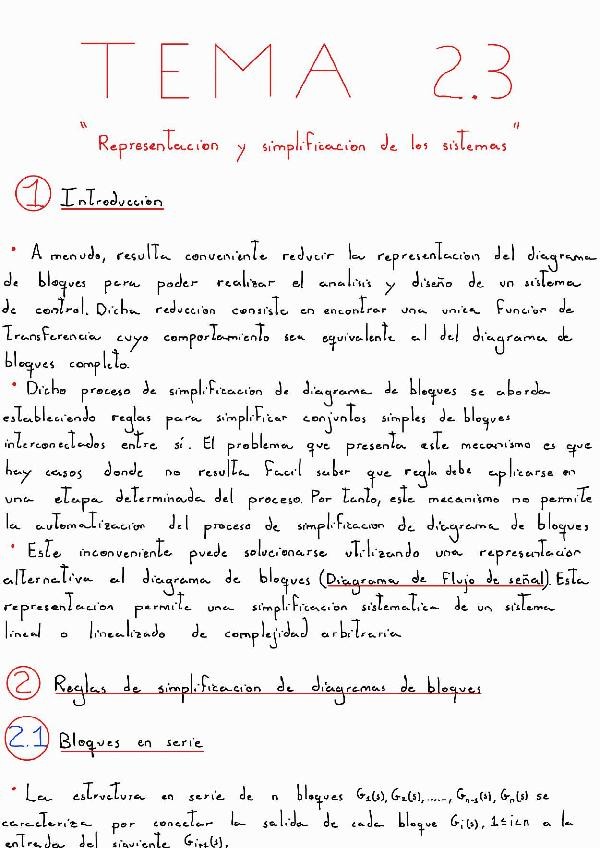 TEMA 2.3
"Representacion y simplificacion de los sistemas"
1 Introduccion
• A menudo, resulta conveniente reducir la representacion del diagrama
de bloques para poder realizar el analisis y diseño de un sistema
de control. Dicha reduccion consiste en encontrar una unica funcion de
transferencia cuyo comportamiento sea equivalente al del diagrama de
bloques completo.
• Dicho proceso de simplificacion de diagrama de bloques se aborda
estableciendo reglas para simplificar conjuntos simples de bloques
interconectados entre sí. El problema que presenta este mecanismo es que
hay casos donde no resulta facil saber que regla debe aplicarse en
una etapa determinada del proceso. Por tanto, este mecanismo no permite
la automatizacion del proceso de simplificacion de diagrama de bloques
• Este inconveniente puede solucionarse utilizando una representacion
alternativa al diagrama de bloques (Diagrama de flujo de señal). Esta
representacion permite una simplificacion sistematica de un sistema
lineal o linealizado de complejidad arbitraria
2 Reglas de simplificacion de diagramas de bloques
2.1 Bloques en serie
• La estructura en serie de n bloques G₁(s), G₂(s), ....., Gₙ₋₁(s), Gₙ(s) se
caracteriza por conectar la salida de cada bloque Gᵢ(s), 1≤i<n a la
entrada del siguiente Gᵢ₊₁(s).